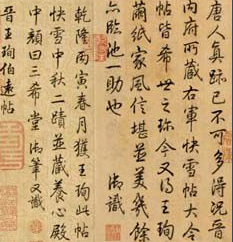 唐人真蹟已不可多得況晉
內府所藏右軍快雪帖大令
帖皆希世之珍今又得王珣
繭紙家風信堪並美幾餘
亦臨池一助也 御識
乾隆丙寅春月獲王珣此帖
快雪中秋二蹟並藏養心殿
中顏曰三希堂 御筆又識
晉王珣伯遠帖